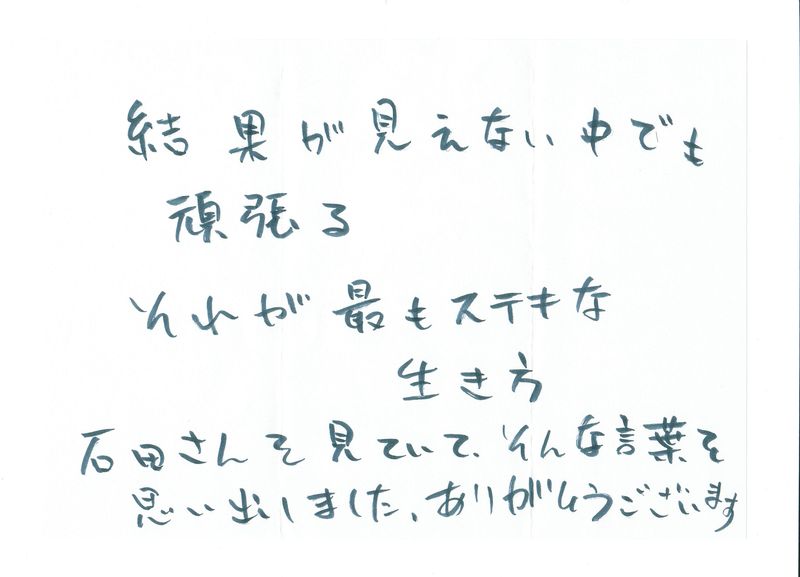 結果が見えない中でも
頑張る
それが最もステキな
生き方
石田さんを見ていて、そんな言葉を
思い出しました、ありがとうございます